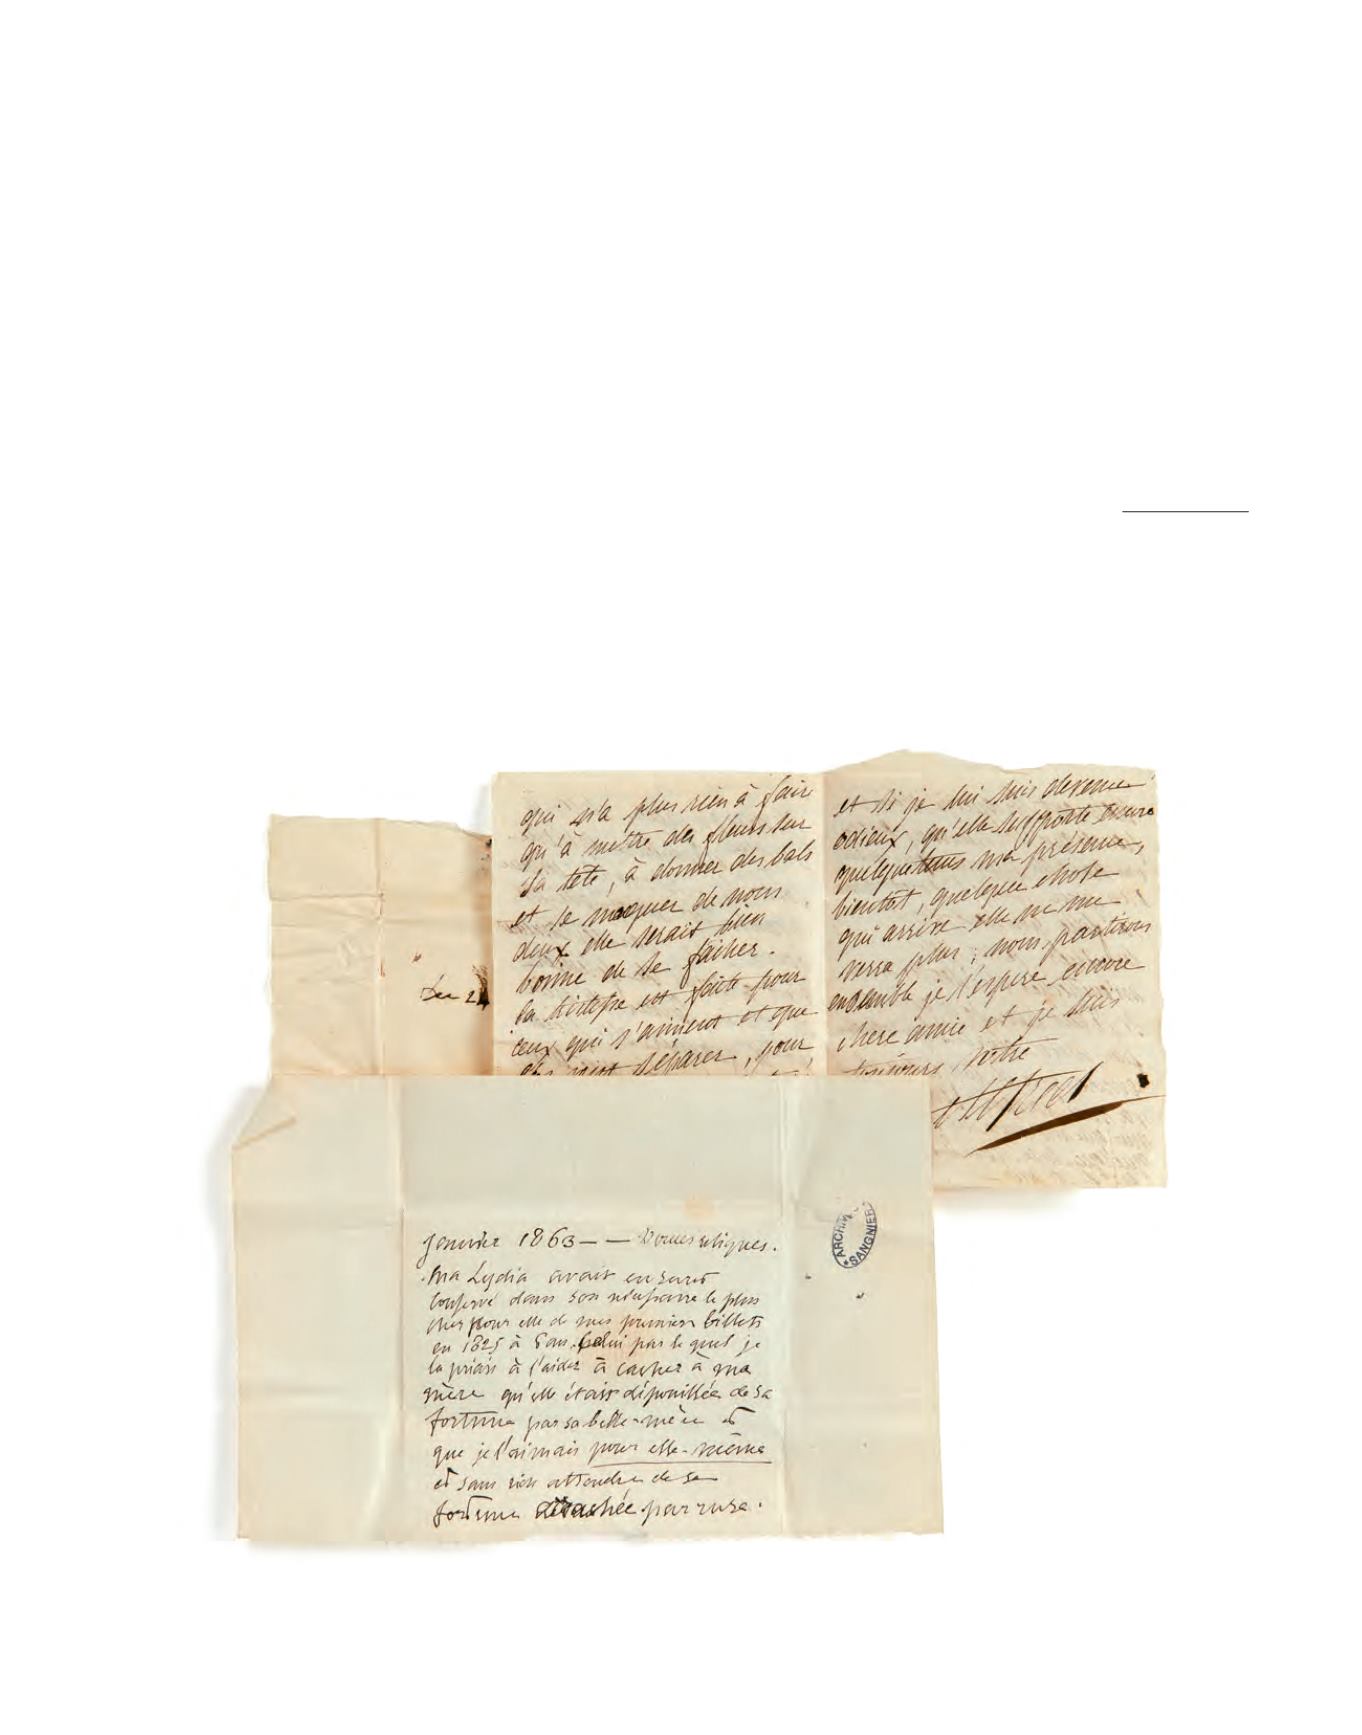 qui n'a plus rien à faire
qu'à mettre des fleurs sur
sa tête, à donner des bals
et se moquer de nous
deux elle serait bien
bonne de se facher.
la tristesse est faite pour
ceux qui s'aiment et que
séparer, pour
et si je lui suis devenu
odieux, qu'elle supporte encore
quelque tems ma présence,
bientôt, quelque chose
qui arrive elle ne me
verra plus ; nous partirons
ensemble je l'espère encore
chere amie et je suis
toujours votre
janvier 1863 — —
Ma Lydia avait
conservé dans son le plus
cher pour elle de mes premiers billets
en 1825 à Pau. celui par lequel je
la priais à l'aider à cacher à ma
mère qu'elle était dépouillée de sa
fortune par sa belle-mère et
que je l'aimais pour elle-même
et sans rien attendre de sa
fortune par ruse.
ARCHIV
SANGNIER